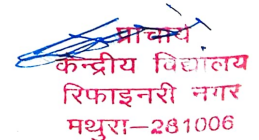 प्राचार्य
केन्द्रीय विद्यालय
रिफाइनरी नगर
मथुरा-281006